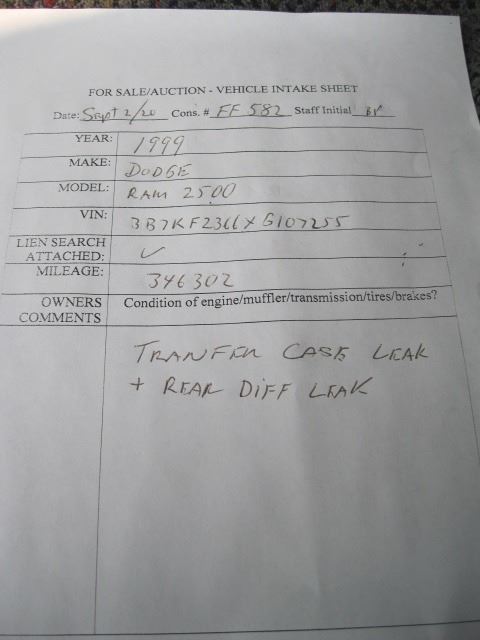 FOR SALE/AUCTION - VEHICLE INTAKE SHEET
Date: Sept 2/20 Cons. # FF 582 Staff Initial BV
YEAR: 1999
MAKE: DODGE
MODEL: RAM 2500
VIN: 3B7KF2366XG107255
LIEN SEARCH
ATTACHED: ✓
MILEAGE: 346302
OWNERS Condition of engine/muffler/transmission/tires/brakes?
COMMENTS
TRANFER CASE LEAK
+ REAR DIFF LEAK